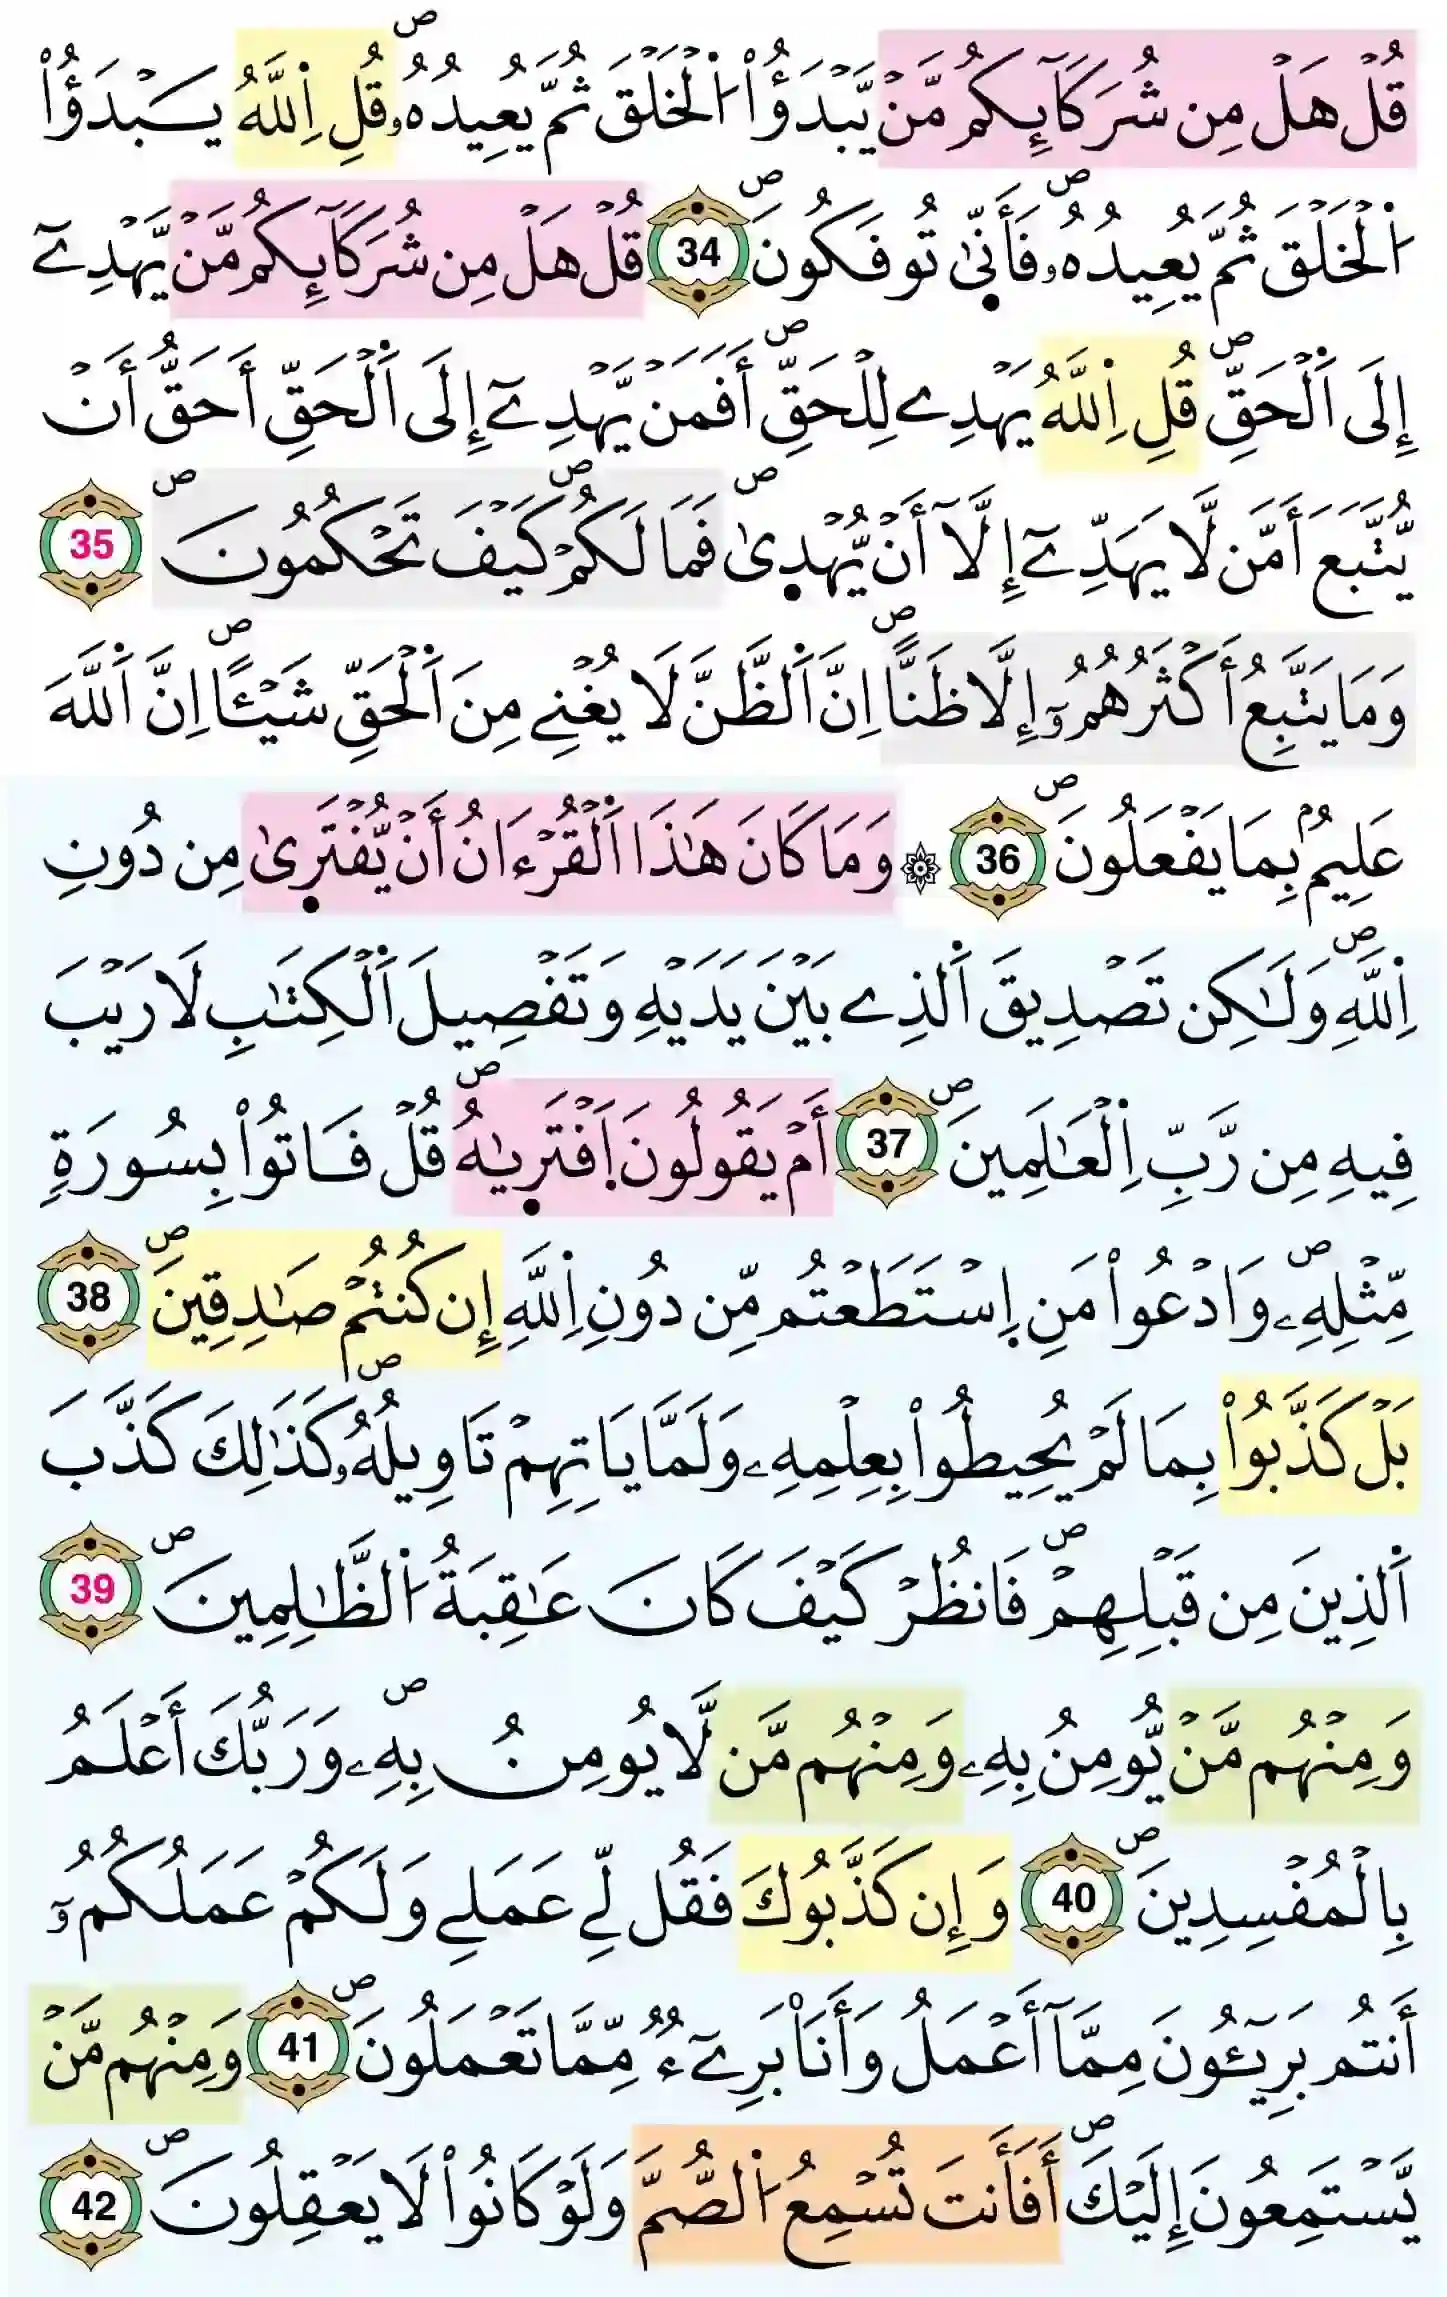 قُلْ هَلْ مِن شُرَكَآئِكُم مَّنْ يَّبْدَؤُاْ اُ۬لْخَلْقَ ثُمَّ يُعِيدُهُۥ ۖ قُلِ اِ۬للَّهُ يَبْدَؤُاْ
اُ۬لْخَلْقَ ثُمَّ يُعِيدُهُۥ ۖ فَأَنّ۪يٰ تُوفَكُونَ ۖ 34 قُلْ هَلْ مِن شُرَكَآئِكُم مَّنْ يَّهْدِےٓ
إِلَى اَ۬لْحَقِّ ۖ قُلِ اِ۬للَّهُ يَهْدِے لِلْحَقِّ ۖ أَفَمَنْ يَّهْدِےٓ إِلَى اَ۬لْحَقِّ أَحَقُّ أَنْ
يُّتَّبَعَ أَمَّن لَّا يَهَدِّےٓ إِلَّآ أَنْ يُّهْد۪يٰ ۖ فَمَا لَكُمْ ۖ كَيْفَ تَحْكُمُونَ ۖ 35
وَمَا يَتَّبِعُ أَكْثَرُهُمُۥٓ إِلَّا ظَنّاً ۖ اِنَّ اَ۬لظَّنَّ لَا يُغْنِے مِنَ اَ۬لْحَقِّ شَيْـٔاً ۖ اِنَّ اَ۬للَّهَ
عَلِيمُۢ بِمَا يَفْعَلُونَ ۖ 36 ۞ وَمَا كَانَ هَٰذَا اَ۬لْقُرْءَانُ أَنْ يُّفْتَر۪يٰ مِن دُونِ
اِ۬للَّهِ ۖ وَلَٰكِن تَصْدِيقَ اَ۬لذِے بَيْنَ يَدَيْهِ وَتَفْصِيلَ اَ۬لْكِتَٰبِ لَا رَيْبَ
فِيهِ مِن رَّبِّ اِ۬لْعَٰلَمِينَ ۖ 37 أَمْ يَقُولُونَ اَ۪فْتَر۪يٰهُ ۖ قُلْ فَاتُواْ بِسُورَةٖ
مِّثْلِهِۦ ۖ وَادْعُواْ مَنِ اِ۪سْتَطَعْتُم مِّن دُونِ اِ۬للَّهِ إِن كُنتُمْ صَٰدِقِينَ ۖ 38
بَلْ كَذَّبُواْ بِمَا لَمْ يُحِيطُواْ بِعِلْمِهِۦ وَلَمَّا يَاتِهِمْ تَاوِيلُهُۥ ۖ كَذَٰلِكَ كَذَّبَ
اَ۬لذِينَ مِن قَبْلِهِمْ ۖ فَانظُرْ كَيْفَ كَانَ عَٰقِبَةُ اُ۬لظَّٰلِمِينَ ۖ 39
وَمِنْهُم مَّنْ يُّومِنُ بِهِۦ وَمِنْهُم مَّن لَّا يُومِنُ بِهِۦ ۖ وَرَبُّكَ أَعْلَمُ
بِالْمُفْسِدِينَ ۖ 40 وَإِن كَذَّبُوكَ فَقُل لِّے عَمَلِے وَلَكُمْ عَمَلُكُمُۥٓ
أَنتُم بَرِيٓـُٔونَ مِمَّآ أَعْمَلُ وَأَنَا۠ بَرِےٓءٞ مِّمَّا تَعْمَلُونَ ۖ 41 وَمِنْهُم مَّنْ
يَّسْتَمِعُونَ إِلَيْكَ ۖ أَفَأَنتَ تُسْمِعُ اُ۬لصُّمَّ وَلَوْ كَانُواْ لَا يَعْقِلُونَ ۖ 42